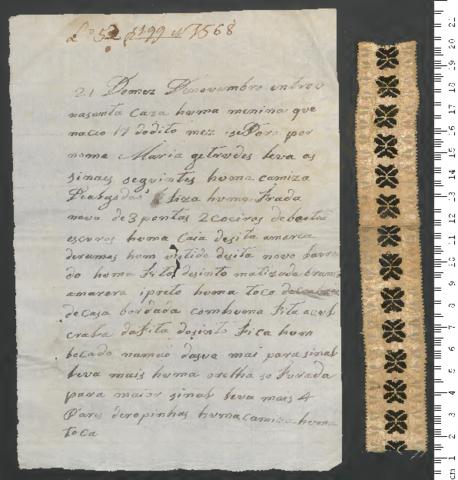 Lº 52 f 199 nº 1568
21 Domez Denovembro entrou
nasanta Caza huma menina que
naceo 17 dodito mez sePora por
nome Maria getrudes leva os
sinaes seguintes huma camiza
Liza huma Frada
nova de 3 pontas 2 coeiros debaeta
escuros huma
derames hum vistido novo
do huma Fita matizada
amarera ipreto huma toca
decasa bordada comhuma Fita azul
dafita Fica hum
bocado namaõ dasua mai para sinal
leva mais huma orelha so Furada
para maior sinal leva mais 4
Pares deropinhas huma camiza huma
toca